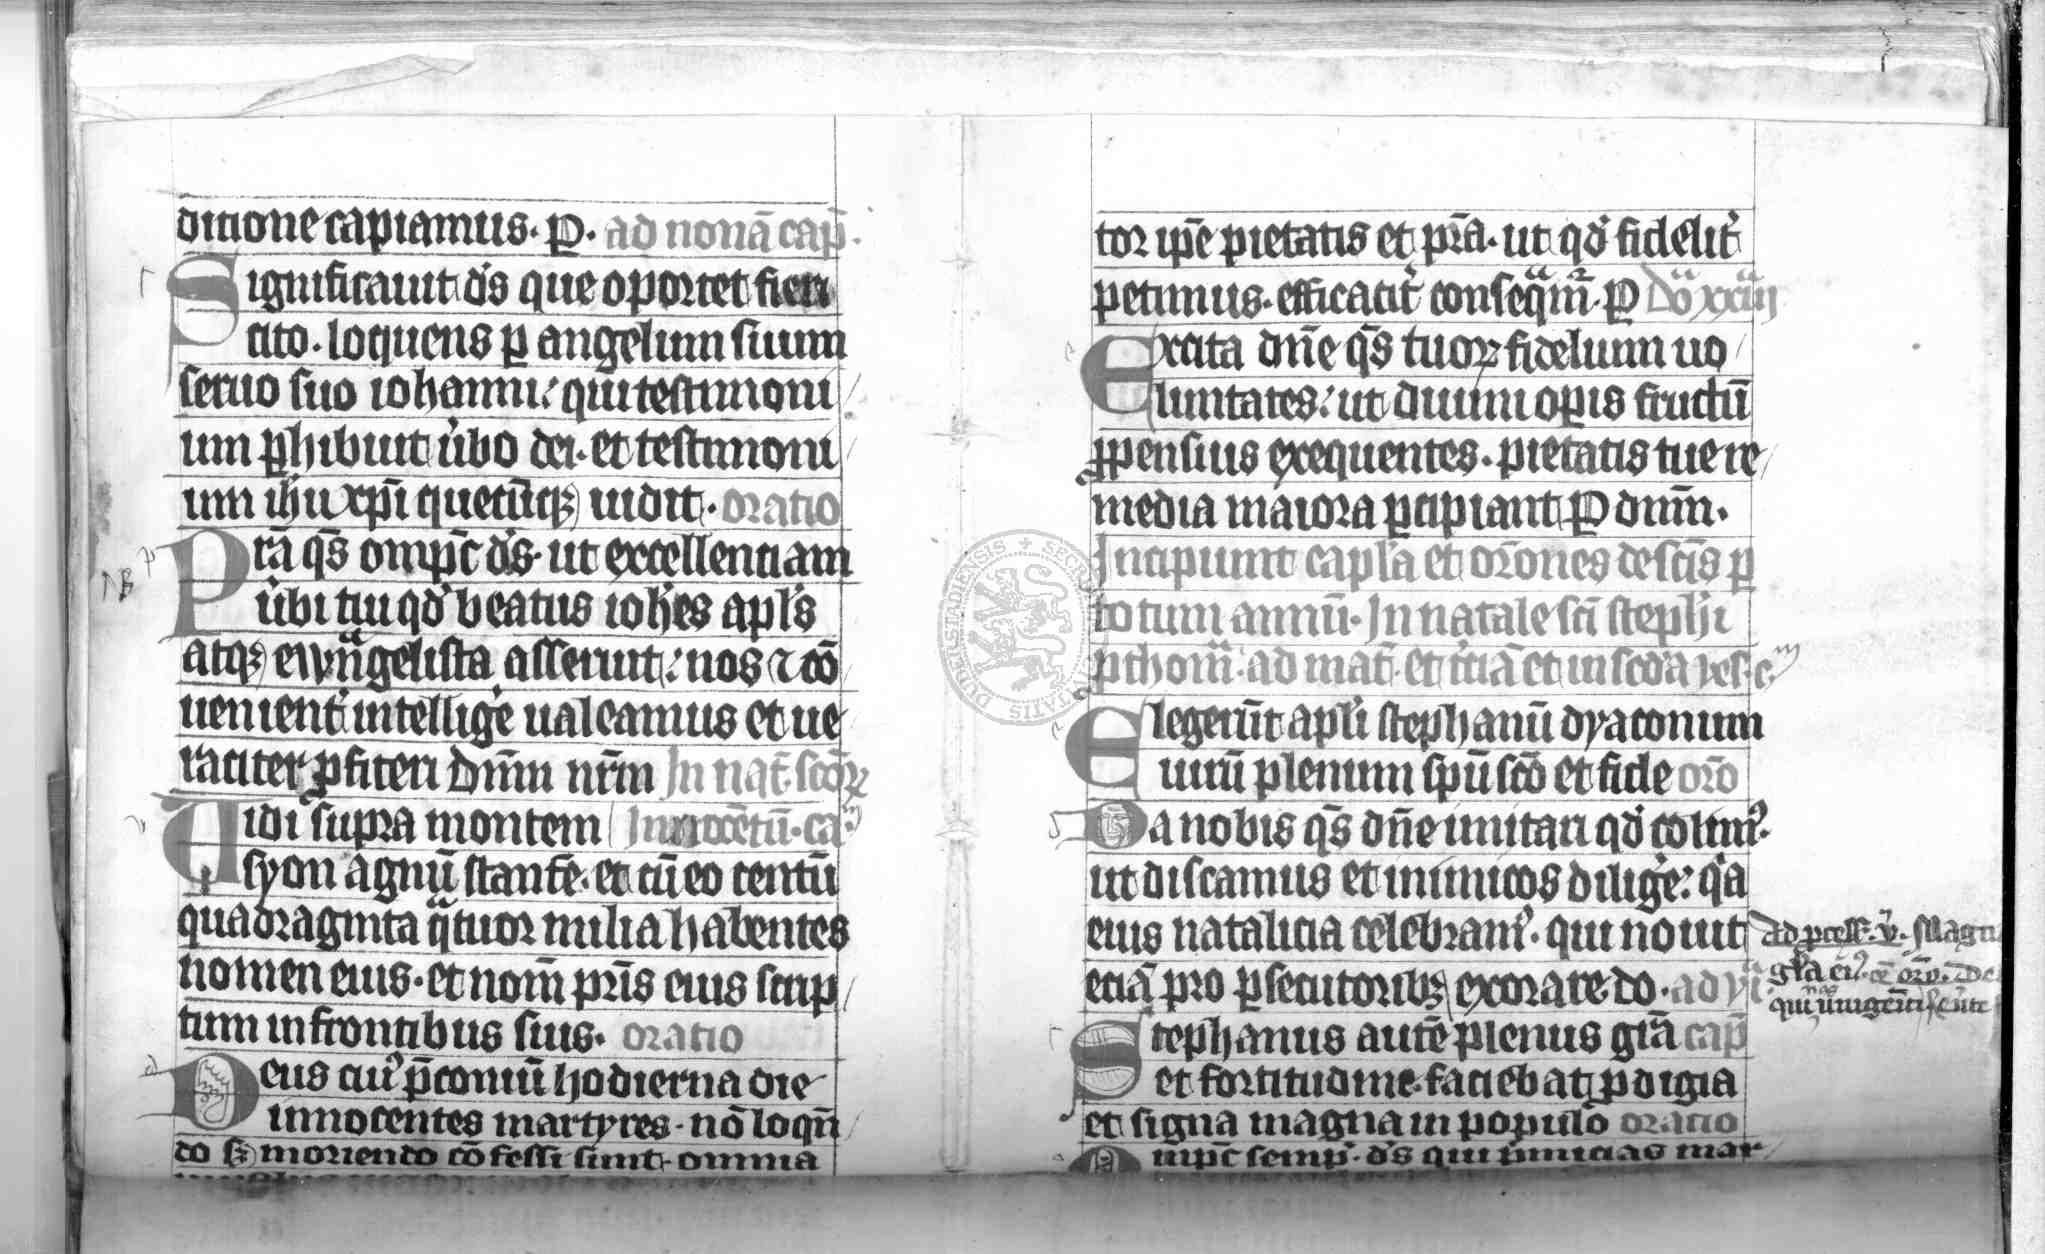 ditione capiamus. P. ad nonā cap̄.
Significauit dꝰs que oportet fieri
cito. loquens ꝑ angelum suum
seruo suo iohanni: qui testimoni
um ꝑhibuit ūbo dei. et testimoni
um ihū xp̄i quecūqꝫ uidit. oratio
Pr̄a q̄s omp̄c dꝰs. ut excellenciam
ūbi tui qd̓ beatus ioh̄es apl̄s
atqꝫ ewangelista asseruit: nos ⁊ cō
uenient̓ intellige̓ ualeamus et ue
raciter ꝓfiteri Dn̄m nr̄m In nat̄. sc̄oꝝ
Uidi supra montem Innocētū. ca.
syon agnū stantē. et cū eo centū
quadraginta qͣtuor milia habentes
nomen eius. et nom̄ pr̄is eius scrip
tum in frontibus suis. oratio
Deus cuiꝰ p̄coniū hodierna die
innocentes martyres. nō loqn̄
do sꝫ moriendo cōfessi sunt. omnia
tor ip̄e pietatis et pr̄a. ut qd̓ fidelit̓
petimus. efficacit̓ conseqͣm̄r. P Dōͣ xxiiij
Excita dn̄e q̄s tuoꝝ fidelium uo
luntates: ut diuini oꝑis fructū
ꝓpensius exequentes. pietatis tue re
media maiora ꝑcipiant P dn̄m.
Incipiunt capl̓a et or̄ones de sc̄is ꝑ
totum annū. In natale sc̄i steph̄i
ꝓthomͣ. ad mat̄. et t̓ciā et in sc̄d̓a ves. c.ᵐ
Elegerūt apl̓i stephanū dyaconum
uirū plenum sp̄u sc̄o et fide or̄o
Da nobis q̄s dn̄e imitari qd̓ colimꝰ.
ut discamus et inimicos dilige̓: q̓a
eius natalicia celebramꝰ. qui nouit
eciā pro ꝑsecutoribꝫ exorare. do. ad vi.
Stephanus autē plenus gr̄a cap̄
et fortitudine. faciebat ꝓdigia
et signa magna in populo oratio
Omp̄c semp̓. dꝰs qui p̓micias mar
ad ꝓcess. v̄. Magn
gl̓a eiꝰ. or̄o. De